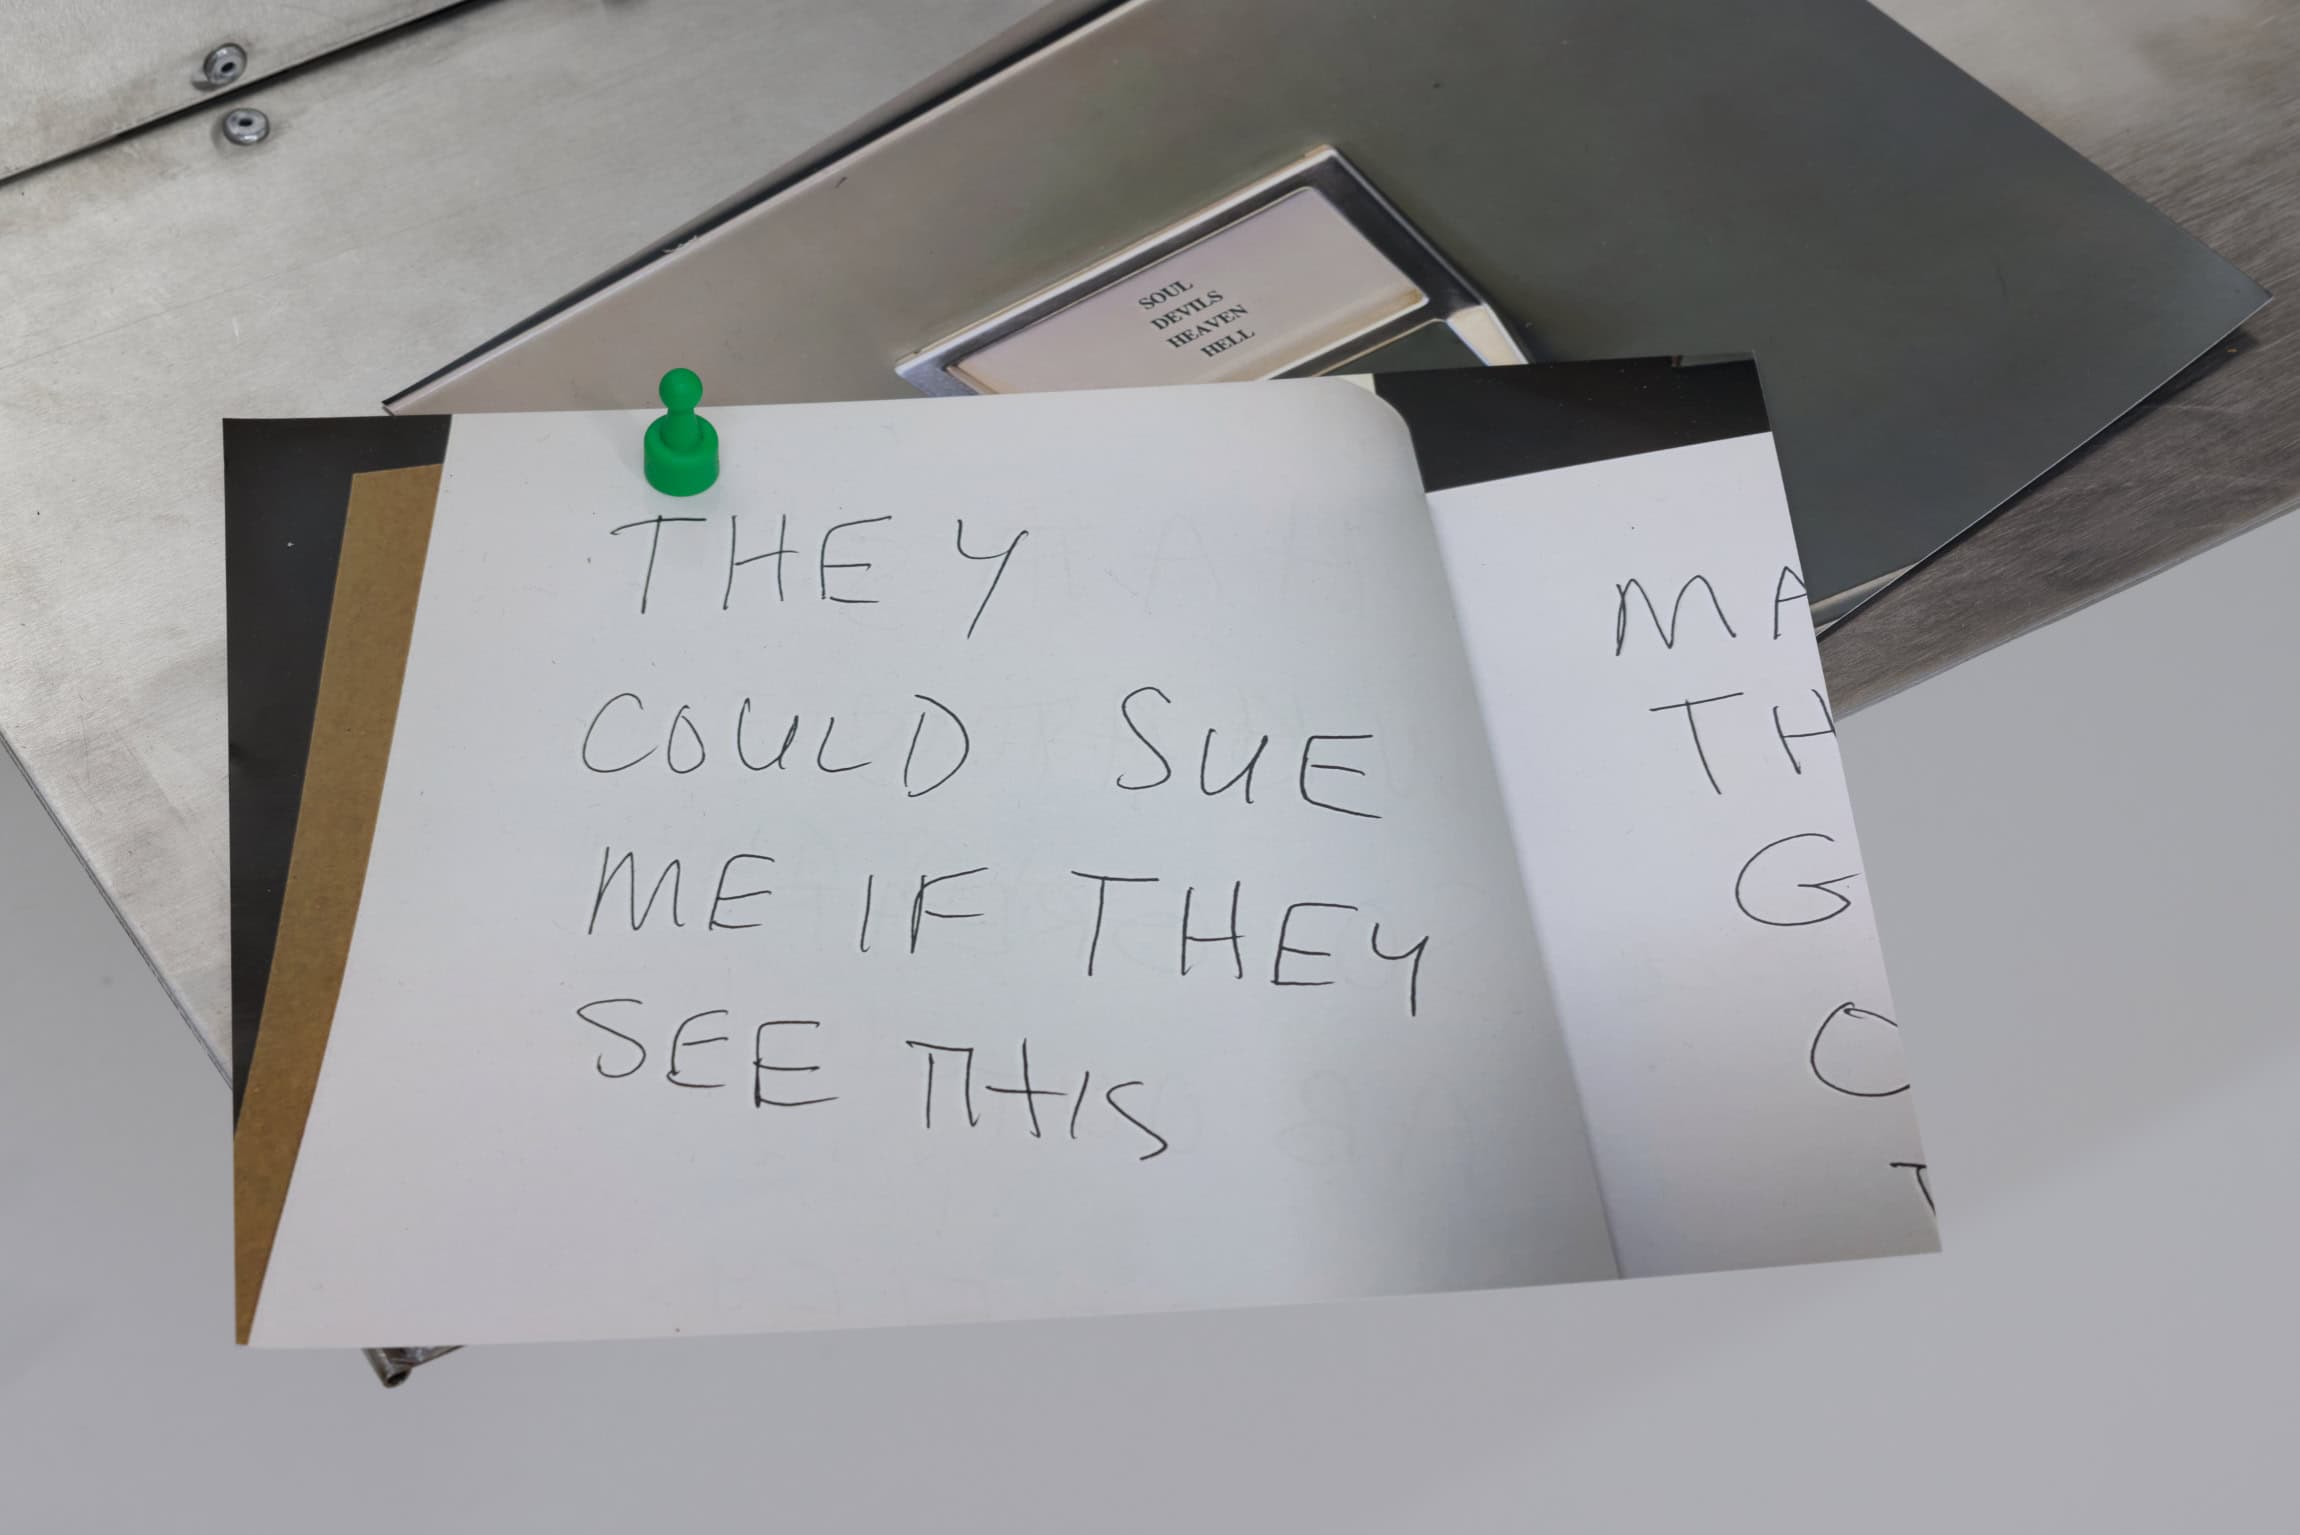 SOUL
DEVILS
HEAVEN
HELL
THEY
COULD SUE
ME IF THEY
SEE THIS
MA
TH
G